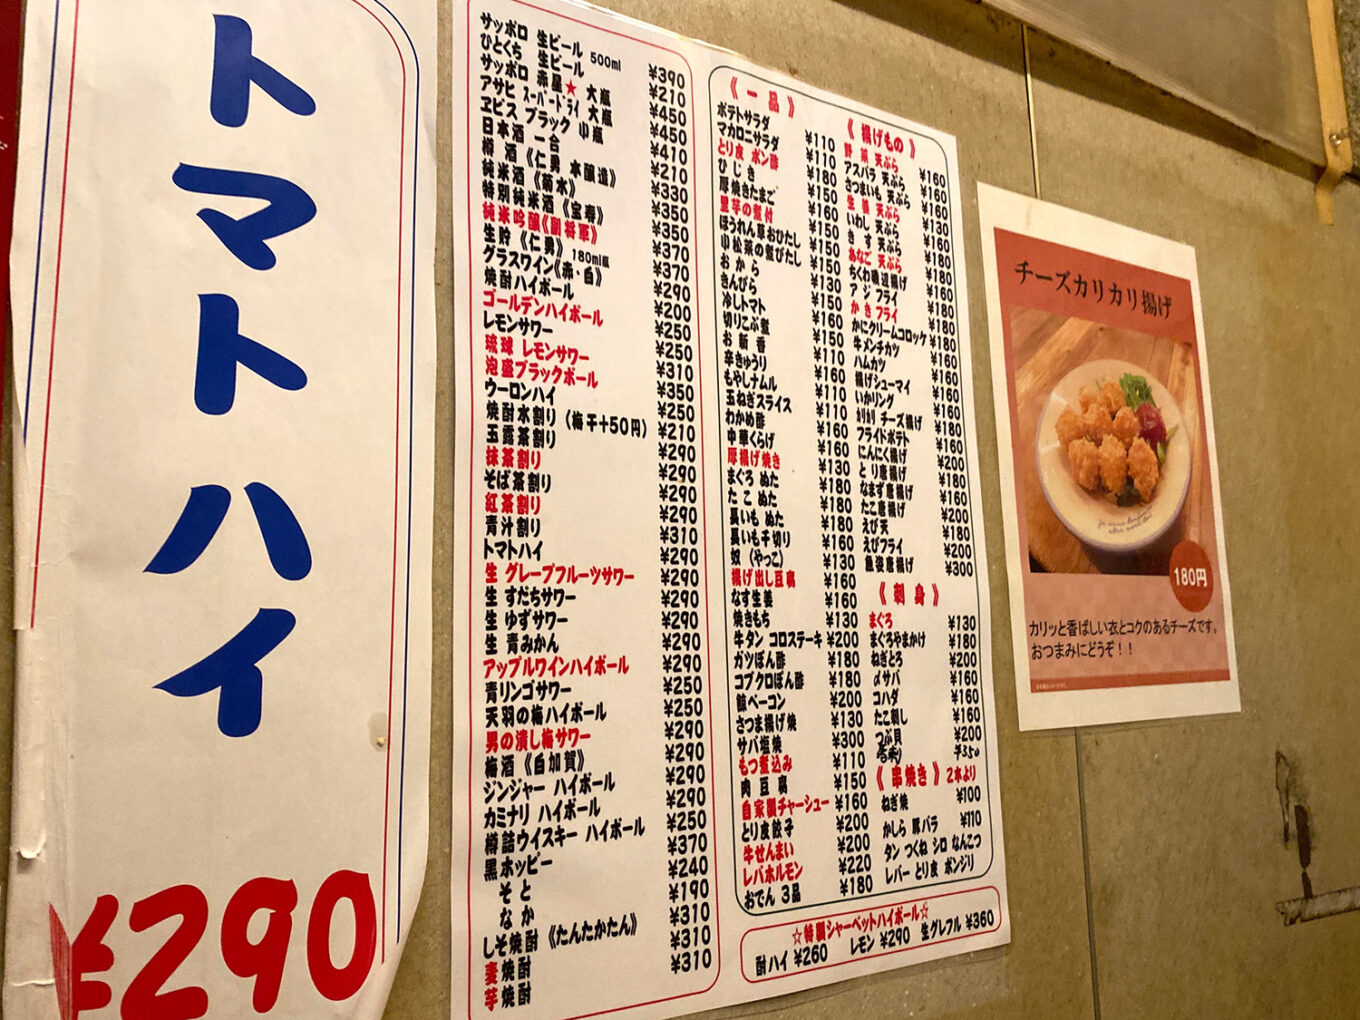 トマトハイ
¥290
サッポロ 生ビール 500ml ¥390
ひとくち 生ビール ¥210
サッポロ 赤星★ 大瓶 ¥450
アサヒ スーパードライ 大瓶 ¥450
ヱビス ブラック 中瓶 ¥410
日本酒 一合 ¥210
樽酒《仁勇 本醸造》 ¥330
純米酒《菊水》 ¥350
特別純米酒《宝寿》 ¥350
純米吟醸《副将軍》 ¥370
生貯《仁勇》180ml瓶 ¥370
グラスワイン《赤・白》 ¥290
焼酎ハイボール ¥200
ゴールデンハイボール ¥250
レモンサワー ¥250
琉球 レモンサワー ¥310
泡盛ブラックボール ¥350
ウーロンハイ ¥250
焼酎水割り（梅干+50円） ¥210
玉露茶割り ¥290
抹茶割り ¥290
そば茶割り ¥290
紅茶割り ¥290
青汁割り ¥310
トマトハイ ¥290
生 グレープフルーツサワー ¥290
生 すだちサワー ¥290
生 ゆずサワー ¥290
生 青みかん ¥290
アップルワインハイボール ¥290
青リンゴサワー ¥250
天羽の梅ハイボール ¥250
男の潰し梅サワー ¥290
梅酒《白加賀》 ¥290
ジンジャー ハイボール ¥290
カミナリ ハイボール ¥290
樽詰ウイスキー ハイボール ¥250
黒ホッピー ¥370
そと ¥240
なか ¥190
しそ焼酎《たんたかたん》 ¥310
麦焼酎 ¥310
芋焼酎 ¥310
《一品》
ポテトサラダ ¥110
マカロニサラダ ¥110
とり皮 ポン酢 ¥180
ひじき ¥150
厚焼きたまご ¥160
里芋の煮付 ¥150
ほうれん草おひたし ¥150
小松菜の煮びたし ¥150
おから ¥130
きんぴら ¥150
冷しトマト ¥160
切りこぶ煮 ¥150
お新香 ¥110
辛きゅうり ¥160
もやしナムル ¥110
玉ねぎスライス ¥110
わかめ酢 ¥160
中華くらげ ¥160
厚揚げ焼き ¥130
まぐろ ぬた ¥180
たこ ぬた ¥180
長いも ぬた ¥180
長いも千切り ¥160
奴（やっこ） ¥130
揚げ出し豆腐 ¥160
なす生姜 ¥160
焼きもち ¥130
牛タン コロステーキ ¥200
ガツぽん酢 ¥180
コブクロぽん酢 ¥180
鯨ベーコン ¥200
さつま揚げ焼 ¥130
サバ塩焼 ¥300
もつ煮込み ¥110
肉豆腐 ¥150
自家製チャーシュー ¥160
とり皮餃子 ¥200
牛せんまい ¥200
レバホルモン ¥220
おでん 3品 ¥180
《揚げもの》
野菜 天ぷら ¥160
アスパラ 天ぷら ¥160
さつまいも 天ぷら ¥130
生姜 天ぷら ¥160
いわし 天ぷら ¥160
きす 天ぷら ¥180
あなご 天ぷら ¥180
ちくわ磯辺揚げ ¥160
アジ フライ ¥180
かき フライ ¥180
かにクリームコロッケ ¥180
牛メンチカツ ¥160
ハムカツ ¥160
揚げシューマイ ¥160
いかリング ¥160
カリカリ チーズ揚げ ¥180
フライドポテト ¥160
にんにく揚げ ¥160
とり唐揚げ ¥200
なまず唐揚げ ¥160
たこ唐揚げ ¥200
えび天 ¥180
えびフライ ¥200
魚姿唐揚げ ¥300
《刺身》
まぐろ ¥130
まぐろやまかけ ¥180
ねぎとろ ¥200
〆サバ ¥160
コハダ ¥160
たこ刺し ¥160
つぶ貝 ¥200
¥350
《串焼き》2本より
ねぎ焼 ¥100
かしら 豚バラ ¥110
タン つくね シロ なんこつ
レバー とり皮 ボンジリ
☆特製シャーベットハイボール☆
酎ハイ ¥260 レモン ¥290 生グレフル ¥360
チーズカリカリ揚げ
180円
カリッと香ばしい衣とコクのあるチーズです。
おつまみにどうぞ！！